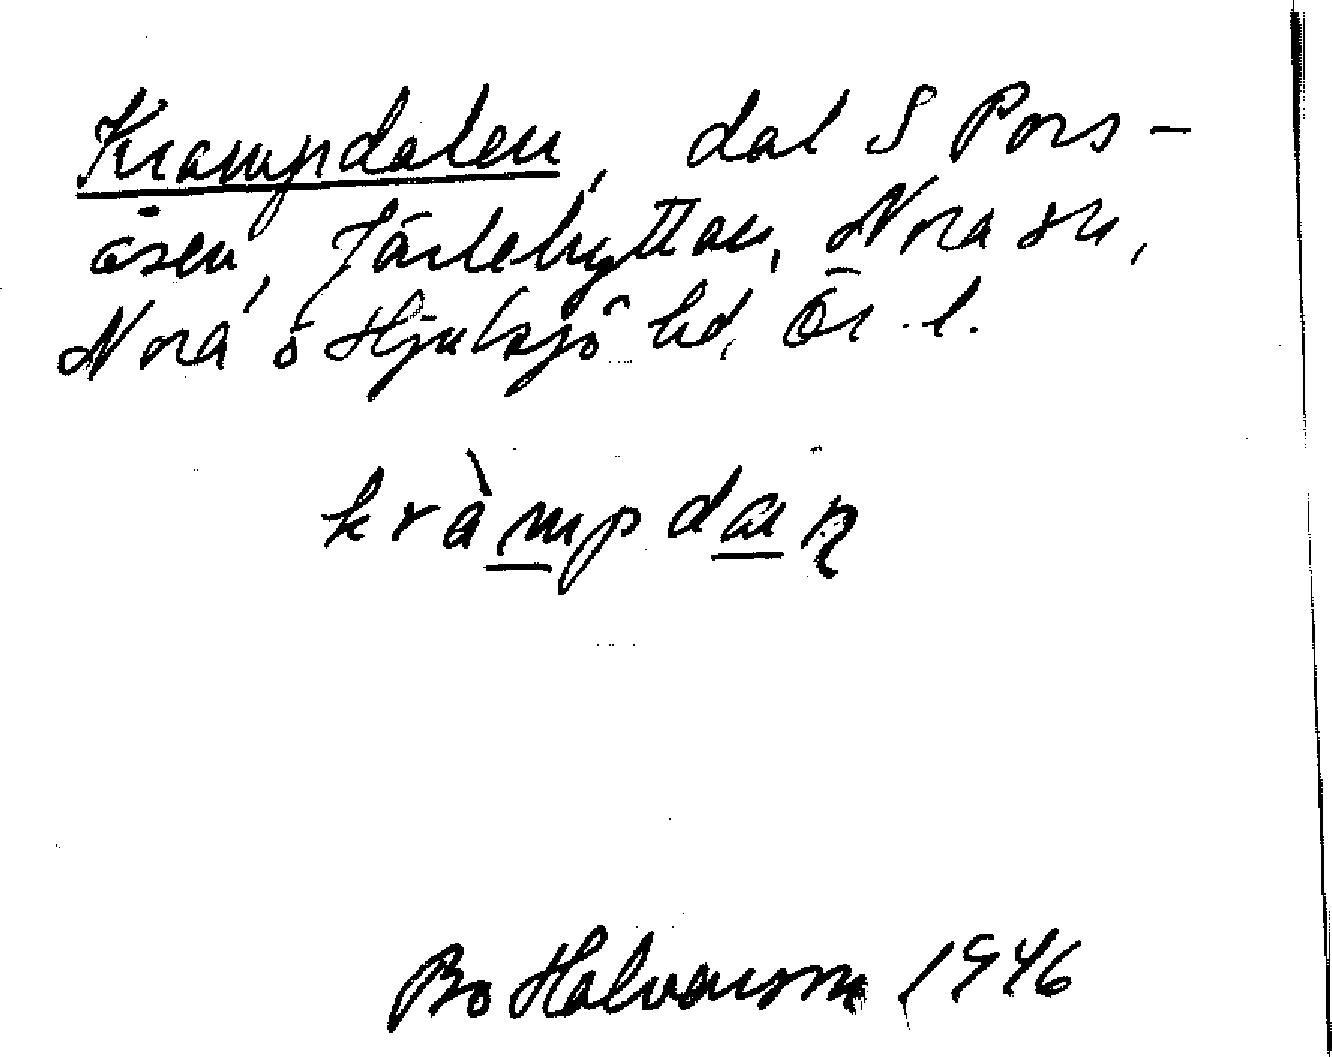 Krampdalen, dal S Pors-
åsen, Järlehyttan, Nora sn,
Nora o Hjulsjö hd, Ör. l.
kràmpdaṇ
Bo Halvarsson 1946